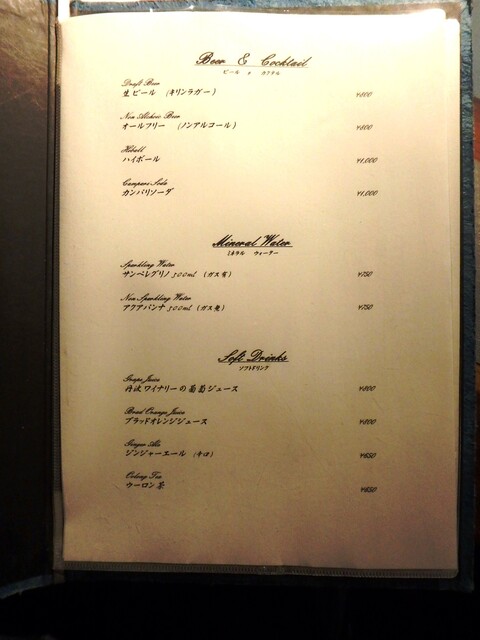 Beer & Cocktail
ビール & カクテル
Draft Beer
生ビール (キリンラガー) ¥800
Non Alchoic Beer
オールフリー (ノンアルコール) ¥800
Hiball
ハイボール ¥1,000
Campari Soda
カンパリソーダ ¥1,000
Mineral Water
ミネラル ウォーター
Sparkling Water
サンペレグリノ 500ml (ガス有) ¥750
Non Sparkling Water
アクアパンナ 500ml (ガス無) ¥750
Soft Drinks
ソフトドリンク
Grape Juice
丹波ワイナリーの葡萄ジュース ¥800
Blood Orange Juice
ブラッドオレンジジュース ¥800
Ginger Ale
ジンジャーエール (辛口) ¥650
Oolong Tea
ウーロン茶 ¥650